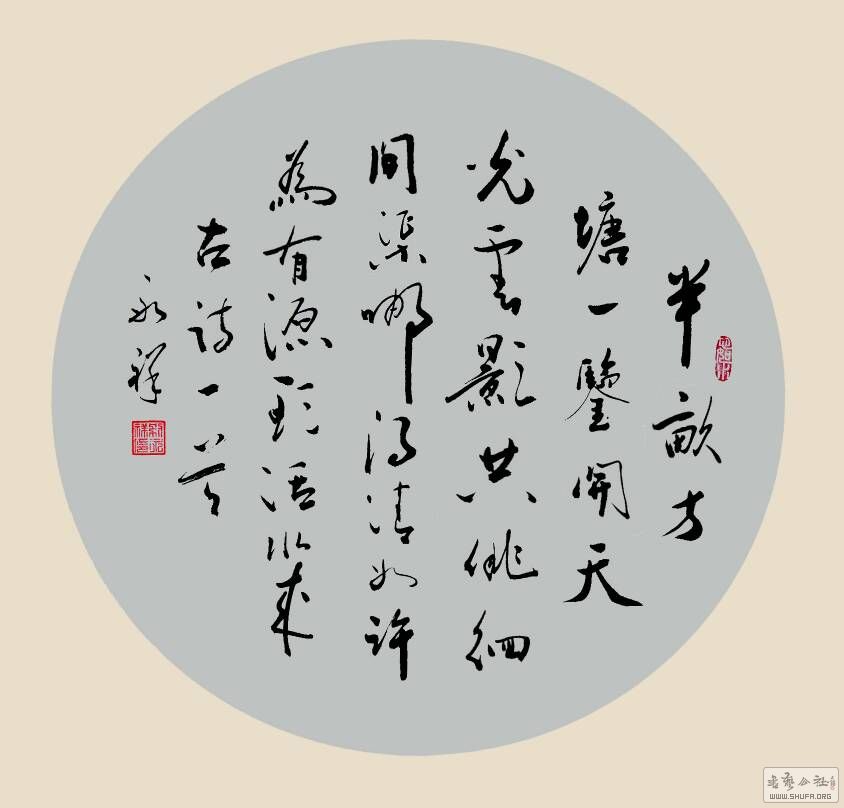 半畝方
塘一鑒開天
光雲影共徘徊
問渠哪得清如許
為有源頭活水來
古詩一首
永祥
書藝公社
WWW.SHUFA.ORG